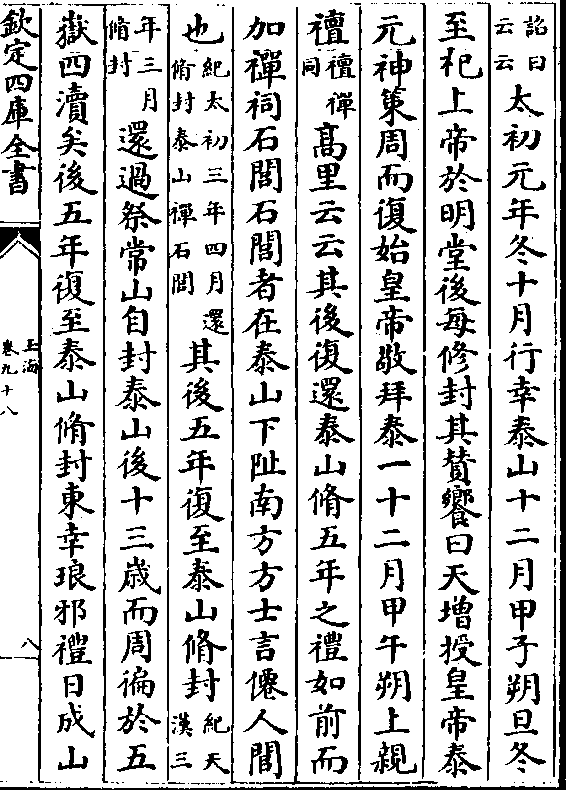 詔曰云云太初元年冬十月行幸泰山十二月甲子朔旦冬
至祀上帝於明堂後每修封其贊饗曰天增授皇帝泰
元神策周而復始皇帝敬拜泰一十二月甲午朔上親
禮禮禪同高里云云其後復還泰山脩五年之禮如前而
加禪祠石閭石閭者在泰山下阯南方方士言僊人閭
也紀太初三年四月還脩封泰山禪石閭其後五年復至泰山脩封紀天漢三
年三月脩封還過祭常山自封泰山後十三歲而周徧於五
嶽四瀆矣後五年復至泰山脩封東幸琅邪禮日成山
欽定四庫全書
玉海
卷九十八
八